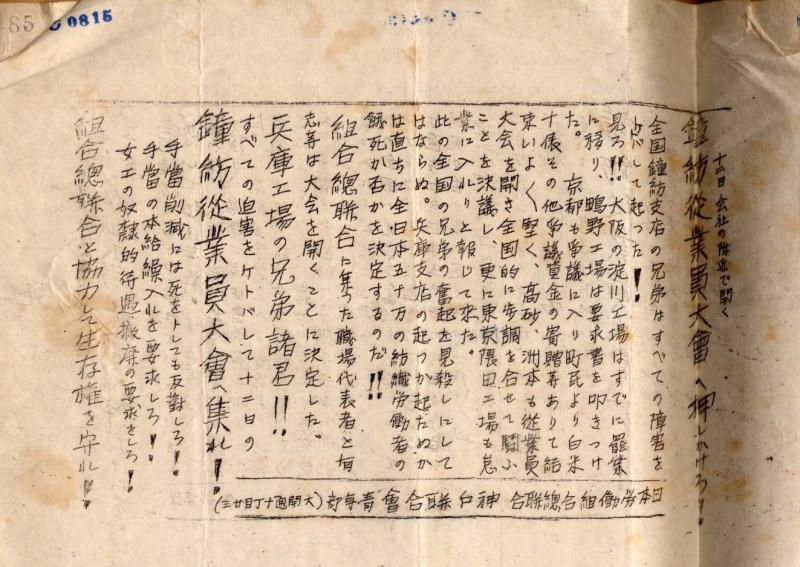 85
0815
十二日 会社の附近で開く
鐘紡従業員大會へ押しかけろ!
全国鐘紡支店の兄弟はすべての障害を
ケトバして起った!
見ろ!!大阪の淀川工場はすでに罷業
に移り、鴨野工場は要求書を叩きつけ
た。京都も爭議に入り町民より白米
十俵その他爭議資金の寄贈等ありて結
束いよ〱堅く、高砂、洲本も従業員
大会を開き全国的に歩調を合せて闘ふ
ことを決議し、更に東京隅田工場も怠
業に入れりと報じて来た。
此の全国の兄弟の奮起を見殺しにして
はならぬ。兵庫支店の起つか起たぬか
は直ちに全日本五十万の紡織労働者の
餓死か否かを決定するのだ!!
組合總聯合に集った職場代表者と有
志等は大会を開くことに決定した。
兵庫工場の兄弟諸君!!
すべての迫害をケトバして十二日の
鐘紡従業員大會へ集れ!
手當削減には死をトしても反對しろ!
手當の本給繰入れを要求しろ!
女工の奴隷的待遇撤廃の要求をしろ!
組合總聯合と協力して生存権を守れ!!
日本労働組合總聯合 神戸聯合會青年部(大開通十丁目廿三)